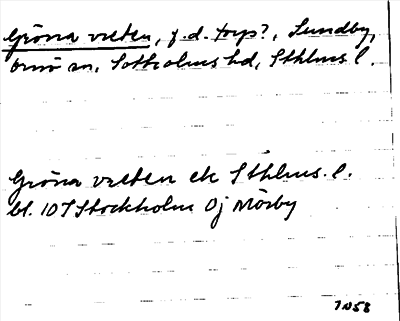 Gröna vreten, f.d. torp?, Sundby,
Ornö sn, Sotholms hd, Sthlms l.
Gröna vreten ek Sthlms. l.
bl. 10 I Stockholm Oj Mörby
1958